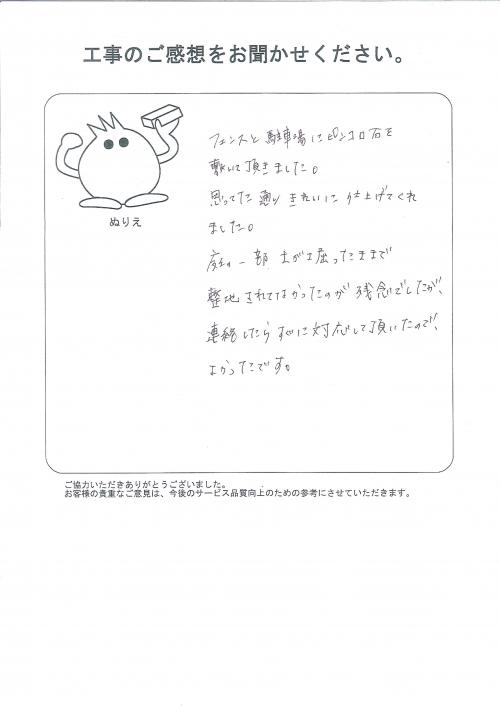 工事のご感想をお聞かせください。
ぬりえ
フェンスと駐車場にピンコロ石を
敷いて頂きました。
思ってた通りきれいに仕上げてくれ
ました。
庭の一部土が掘ったままで
整地されてなかったのが残念でしたが、
連絡したらすぐに対応して頂いたので、
よかったです。
ご協力いただきありがとうございました。
お客様の貴重なご意見は、今後のサービス品質向上のための参考にさせていただきます。